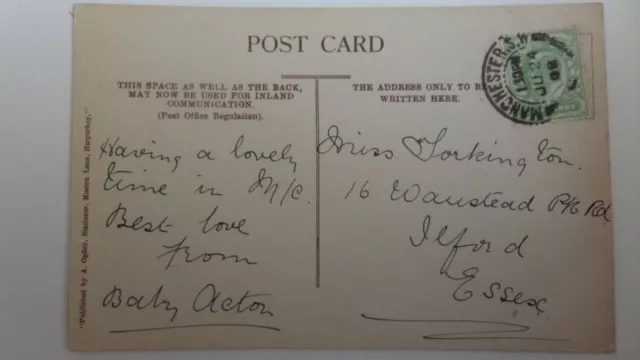 POST CARD
THIS SPACE AS WELL AS THE BACK,
MAY NOW BE USED FOR INLAND
COMMUNICATION.
(Post Office Regulation).
THE ADDRESS ONLY TO B
WRITTEN HERE.
MANCHESTER. S.W
Having a lovely
time in M/c.
Best love
from
Baby Acton
Miss Torkington.
16 Wanstead Pk Rd
Ilford
Essex
"Published by A. Ogden, Stationer, Moston Lane, Harpurhey."